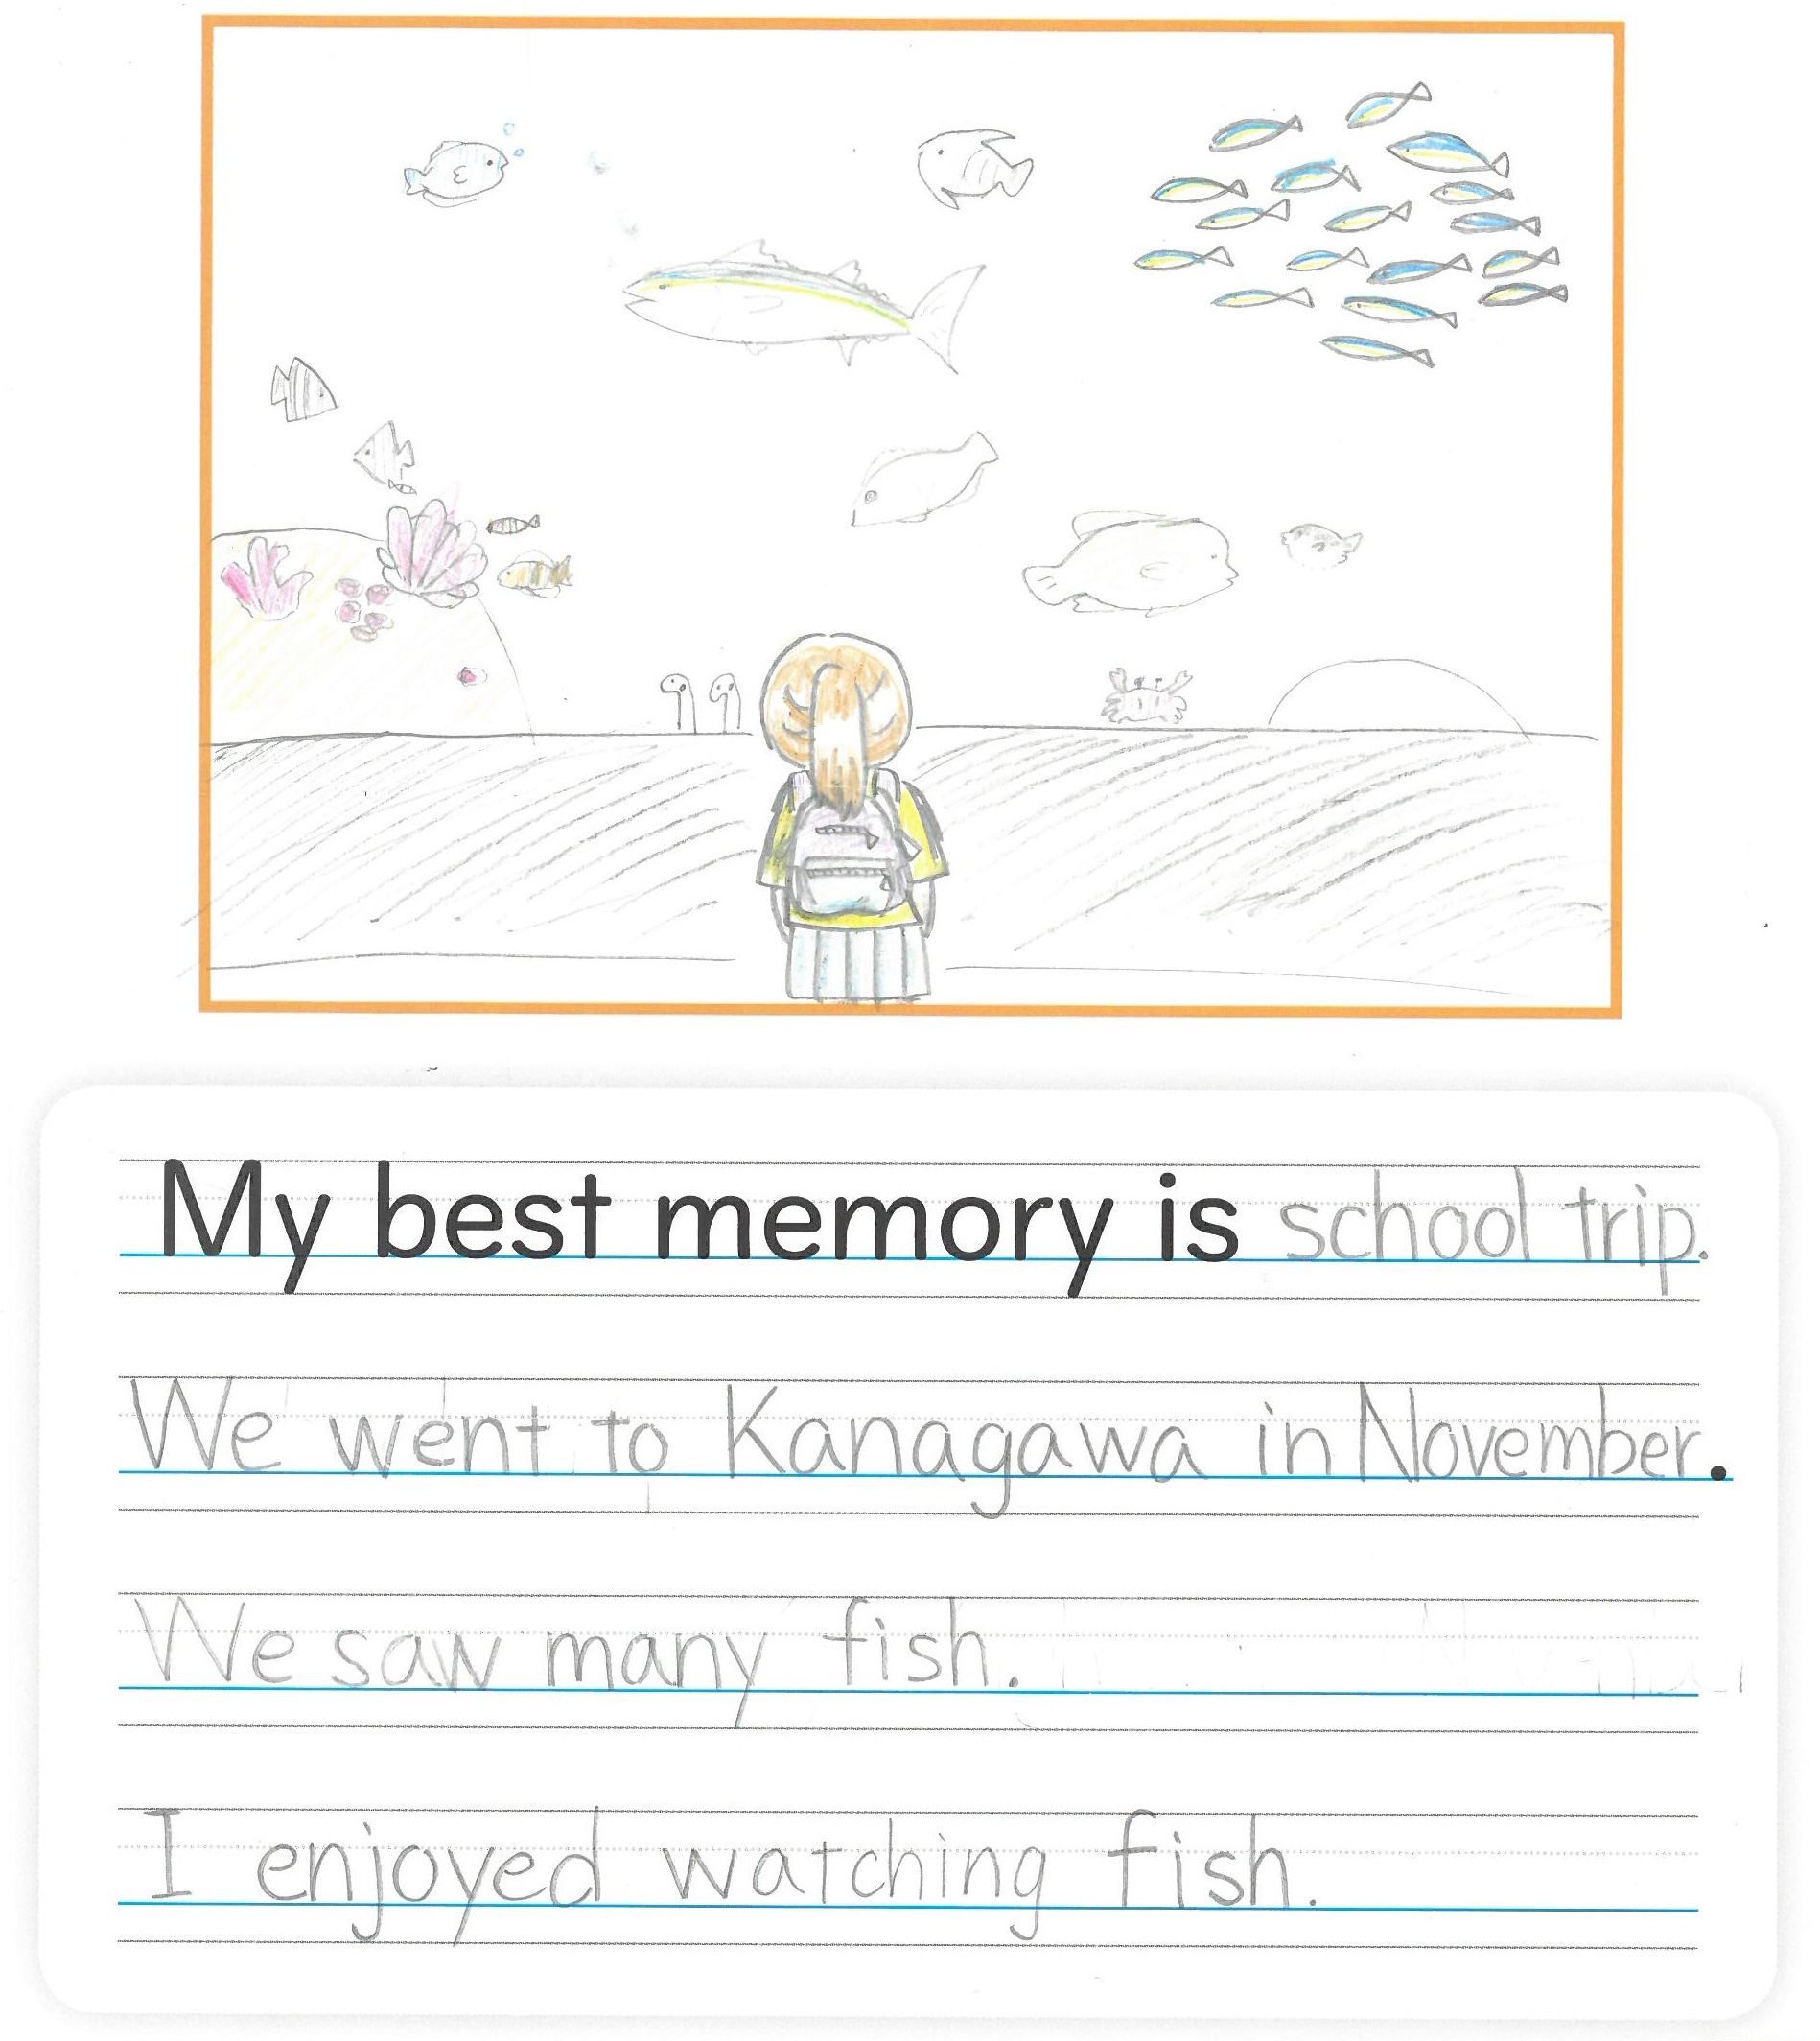 My best memory is school trip.
We went to Kanagawa in November.
We saw many fish.
I enjoyed watching fish.